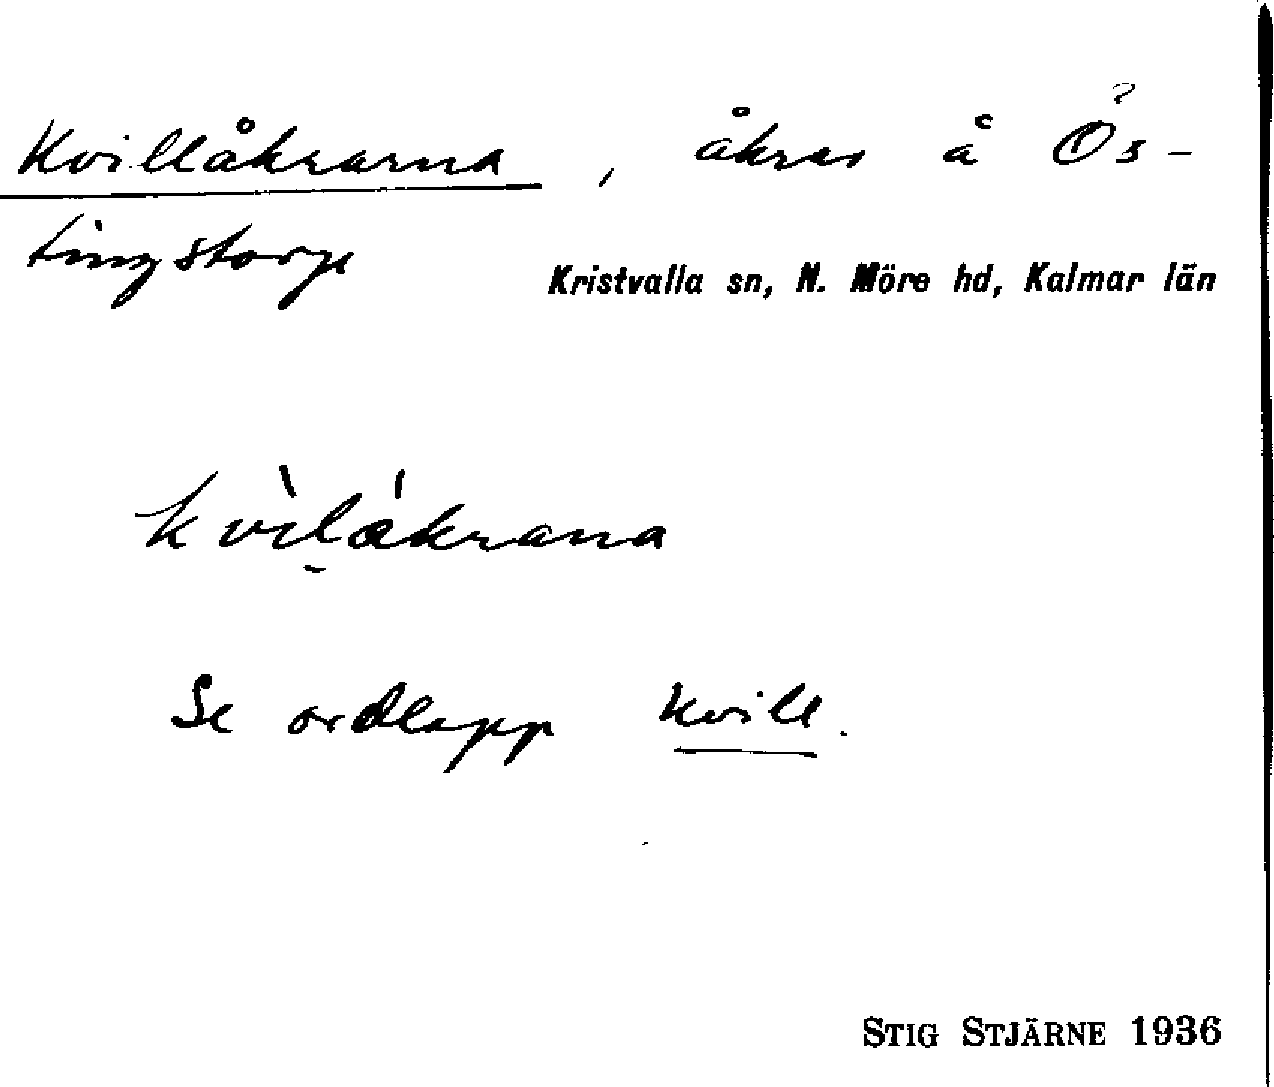 Kvillåkrarna, åkrar å Ös-
tingstorp
Kristvalla sn, N. Möre hd, Kalmar län
kvìlákrana
Se ordlapp kvill.
STIG STJÄRNE 1936